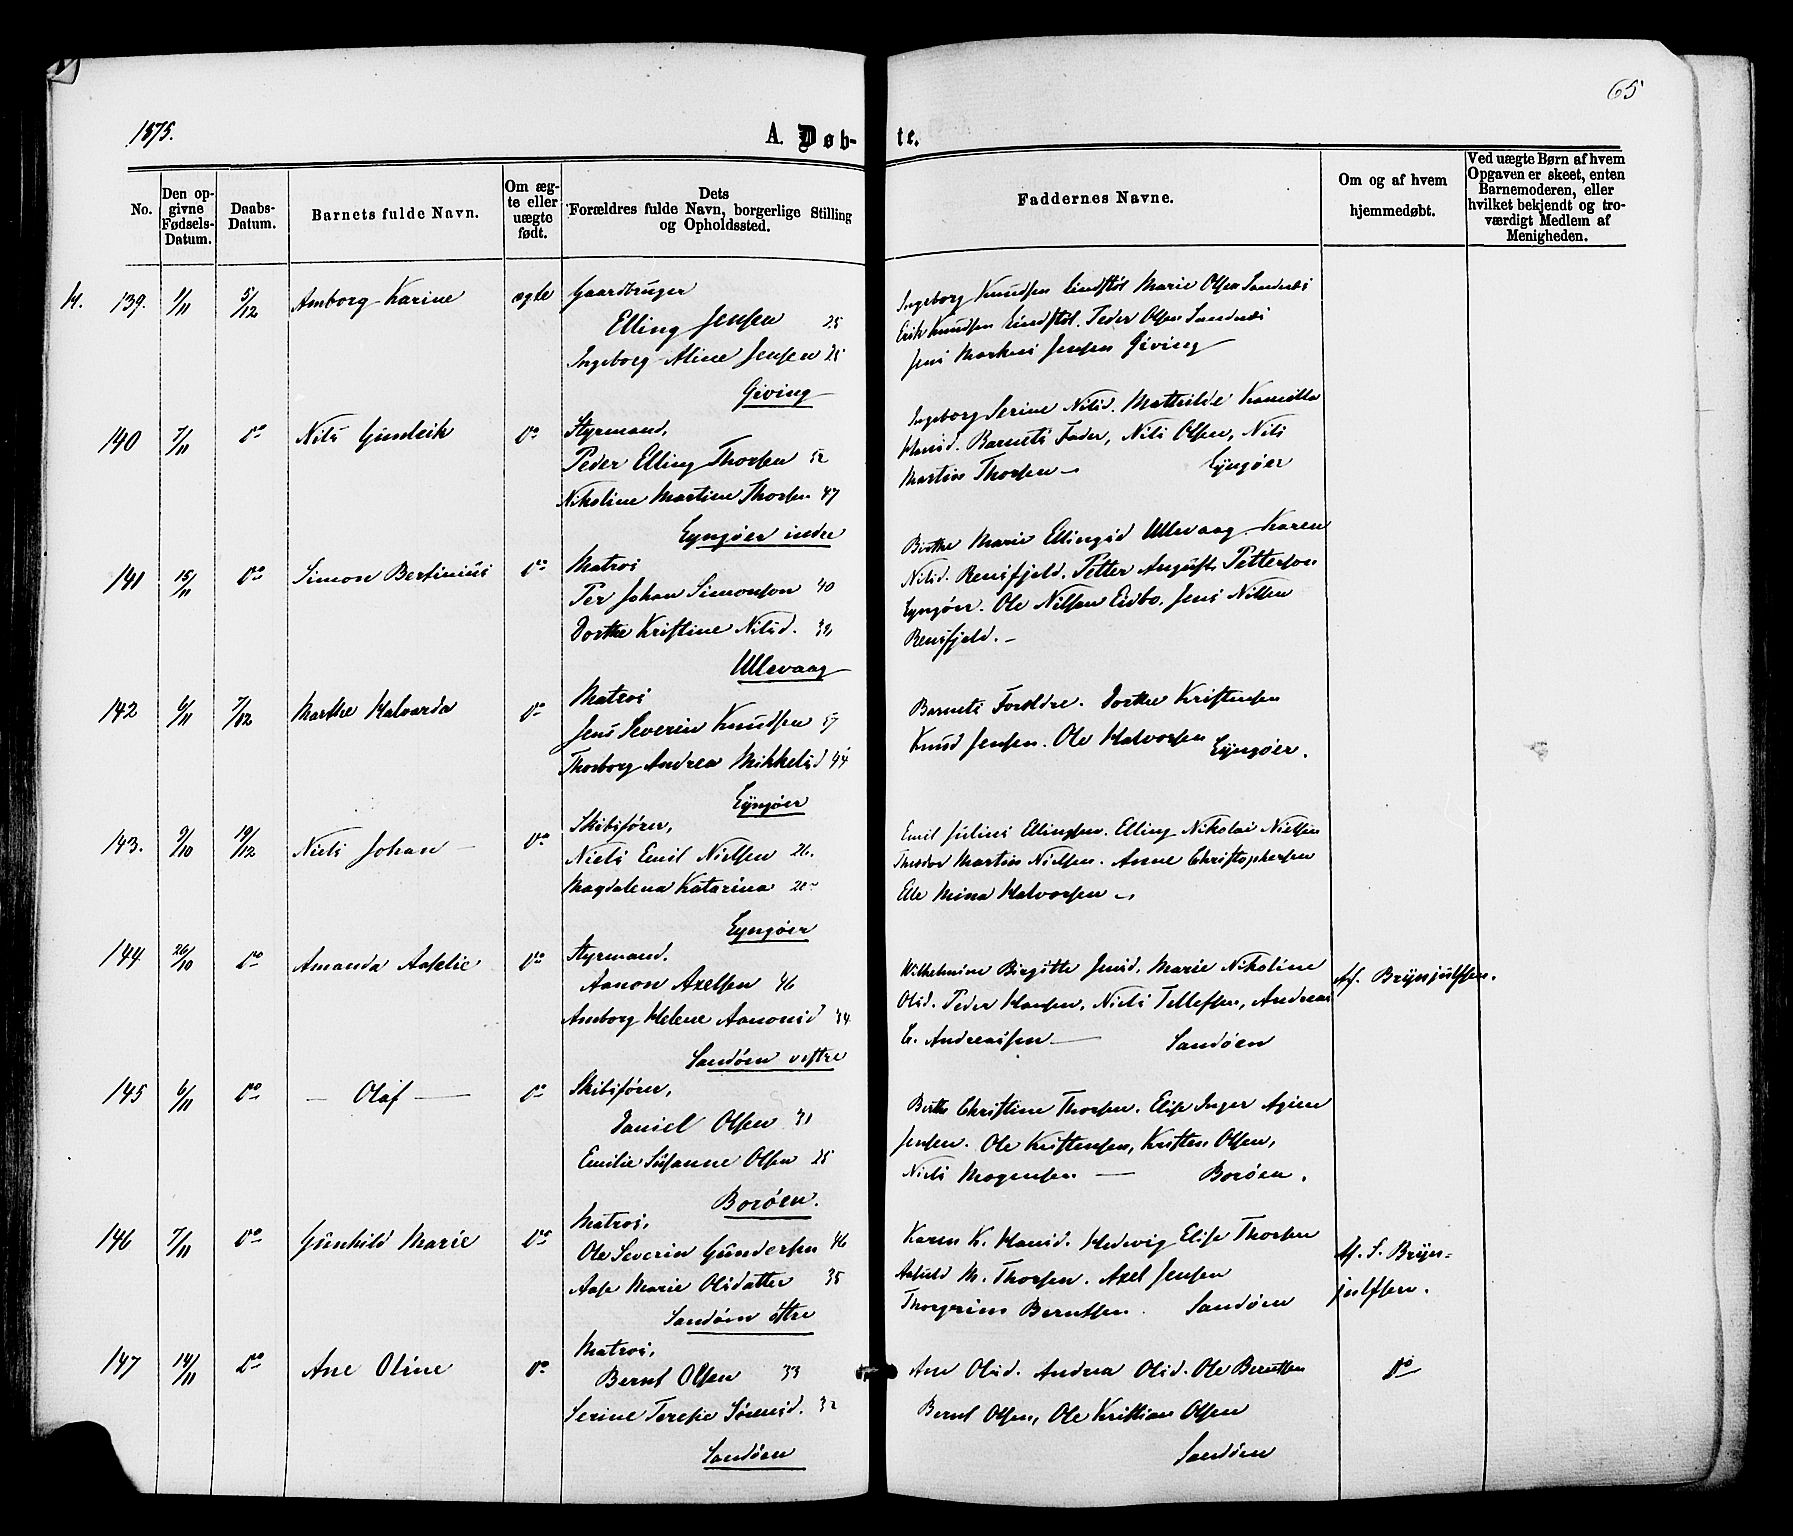 65
1875.
A. Døb-
te.
No.
Den op-
givne
Fødsels-
Datum.
Daabs-
Datum.
Barnets fulde Navn.
Om æg-
te eller
uægte
født.
Dets
Forældres fulde Navn, borgerlige Stilling
og Opholdssted.
Faddernes Navne.
Om og af hvem
hjemmedøbt.
Ved uægte Børn af hvem
Opgaven er skeet, enten
Barnemoderen, eller
hvilket bekjendt og tro-
værdigt Medlem af
Menigheden.
139. 1/11 5/12 Amborg Karine ægte Gaardbruger
Elling Jensen 25
Ingeborg Aline Jensen 25
Giving
Ingeborg Knudsen Lindstøl Marie Olsen Sandnæs
Erik Knudsen Lindstøl. Peder Olsen Sandnæs
Jens Markus Jensen Giving
140 7/11 Do Nils Gundvik Do Styrmand,
Peder Elling Thorsen 52
Nikoline Martine Thorsen 47
Lyngøer indre
Ingeborg Serine Nilsd. Mathilde Kamilla
Hansd. Barnets Fader, Nils Olsen, Nils
Martin Thorsen – Lyngøer
141 15/11 Do Simon Bertinius Do Matros
Per Johan Simonson 40
Dorthe Kristine Nilsd.
Ullevaag
Birthe Marie Ellingsd Ullevaag Karen
Nilsd. Rensfjeld. Petter August Petterson
Lyngøer. Ole Nilsen Eidbo, Jens Nilsen
Rensfjeld. –
142 6/11 7/12 Marthe Halvarda Do Matros
Jens Severin Knudsen 57
Thorborg Andrea Mikkelsd 44
Lyngøer
Barnets Foreldre. Dorthe Kristensen
Knud Jensen. Ole Halvorsen Lyngøer.
143. 9/10 19/12 Niels Johan – Do Skibsfører,
Niels Emil Nielsen 26.
Magdalena Katarina 20
Lyngøer
Emil Julius Ellingsen. Elling Nikolai Nielsen
Theodor Martin Nielsen. Anne Christophersen
Elle Mina Halvorsen –
144 26/10 Do Amanda Aaselie Do Styrmand.
Aanon Axelsen 46
Amborg Helene Aanonsd 34
Sandøen vestre
Wilhelmine Birgitte Jensd. Marie Nikoline
Olsd. Peder Hansen, Niels Tellefsen, Andreas
C. Andreassen – Sandøen
Af. Brynjulfsen.
145 6/11 Do – Olaf – Do Skibsfører,
Daniel Olsen 31
Emilie Susanne Olsen 25
Borøen.
Berthe Christine Thorsen. Elise Inger Agine
Jensen. Ole Kristensen, Kristen Olsen,
Niels Mogensen – Borøen.
146 7/11 Do Gunhild Marie Do Matros,
Ole Severin Gundersen 46
Aase Marie Olsdatter 35
Sandøen østre
Karen K. Hansd. Hedevig Elise Thorsen
M. Thorsen. Axel Jensen
Thorgrim Berntsen. Sandøen
Af. S. Bryn-
julfsen.
147 14/11 Do Ane Oline Do Matros,
Bernt Olsen 33
Serine Terese Sørensd. 32
Sandøen
Ane Olsd. Andrea Olsd. Ole Berntsen
Bernt Olsen, Ole Kristian Olsen
Sandøen
Do